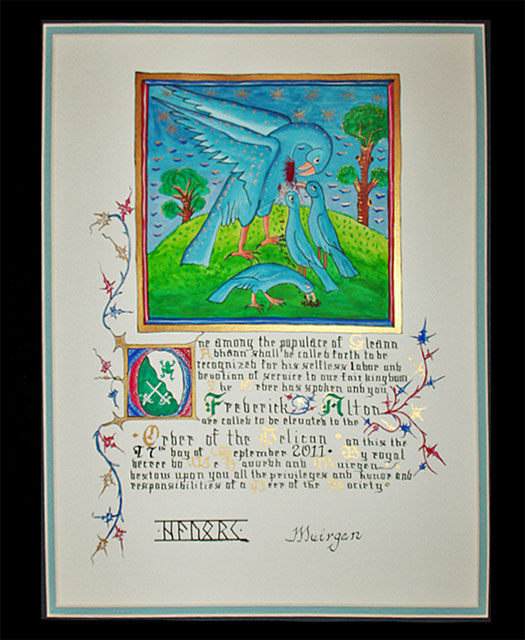 One among the populace of Gleann
Abhann shall be called forth to be
recognized for his selfless labor and
devotion of service to our fair kingdom
The Order has spoken and you
Frederick Alton
are called to be elevated to the
Order of the Pelican · on this the
17th day of September 2011 · By royal
decree do We and Muirgen
bestow upon you all the privileges and honor and
responsibilities of a Peer of the Society
Muirgen